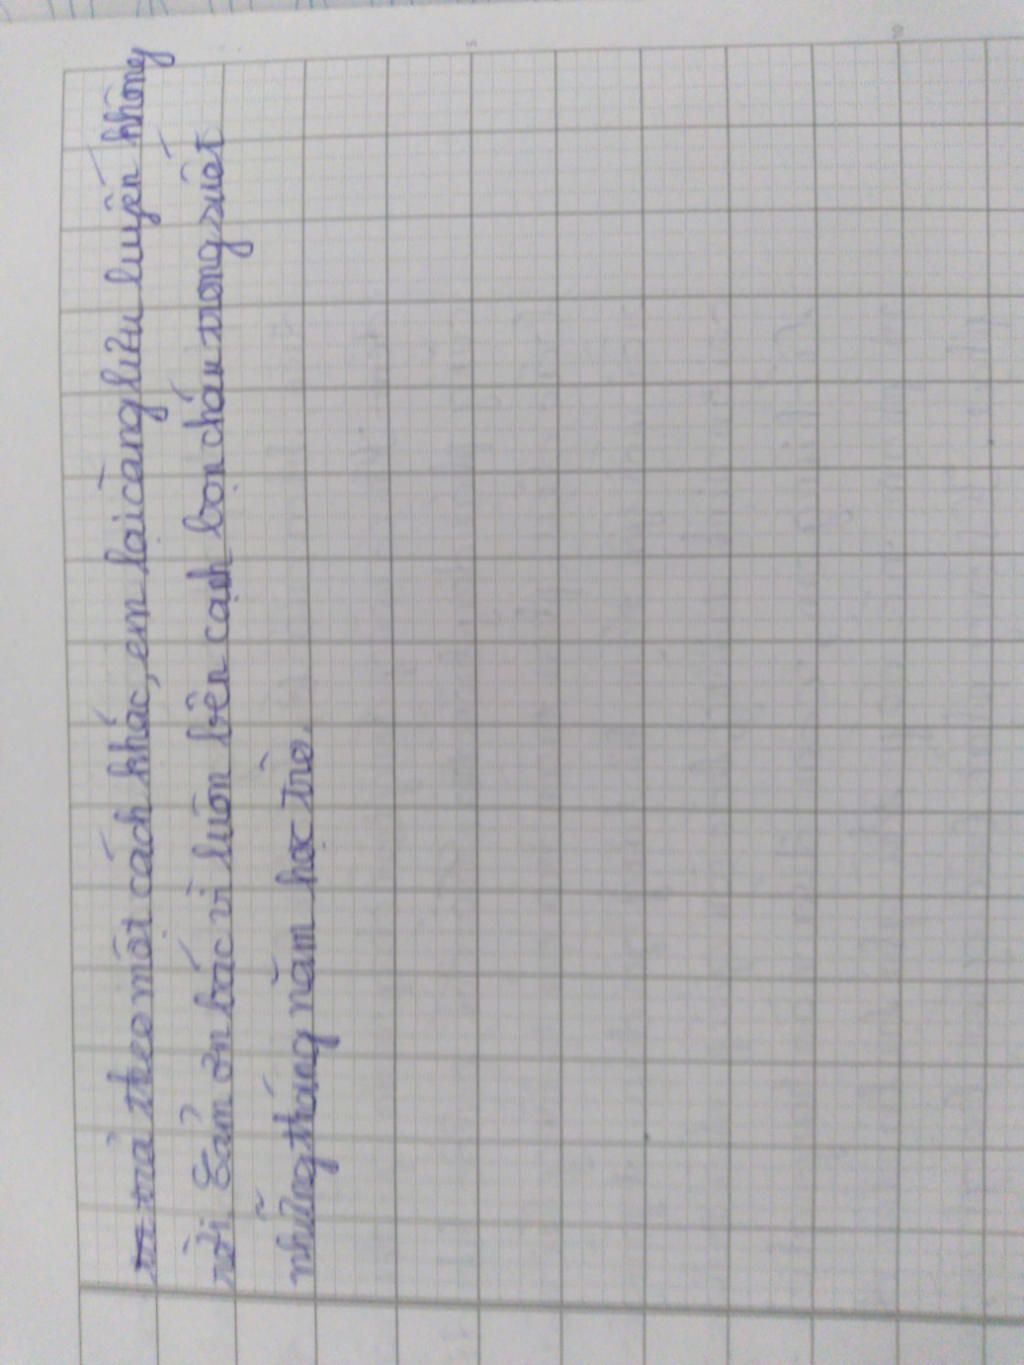 trả theo một cách khác, em lại càng lưu luyến không
rời. Cảm ơn bác vì luôn bên cạnh bọn cháu trong suốt
những tháng năm học trò.